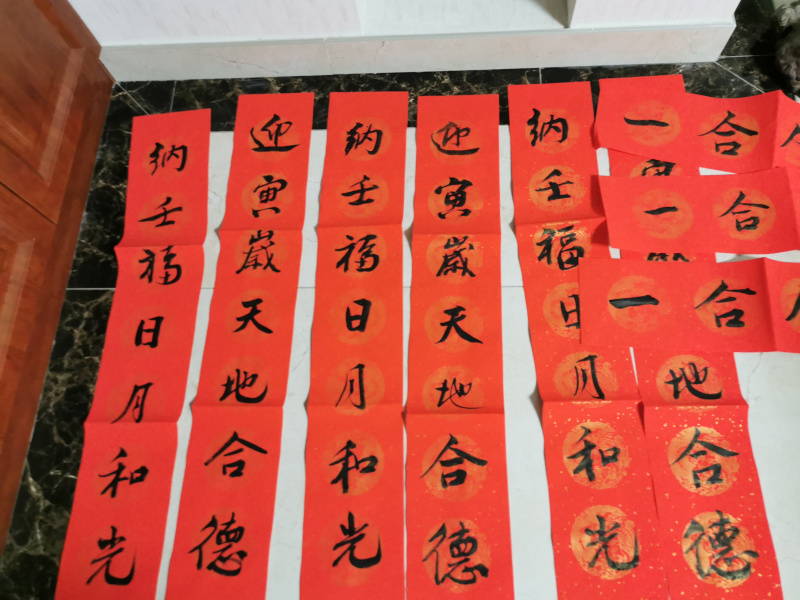 一合
一合
一合
寅地合德
纳壬福日月和光
迎寅嵗天地合德
纳壬福日月和光
迎寅嵗天地合德
纳壬福日月和光